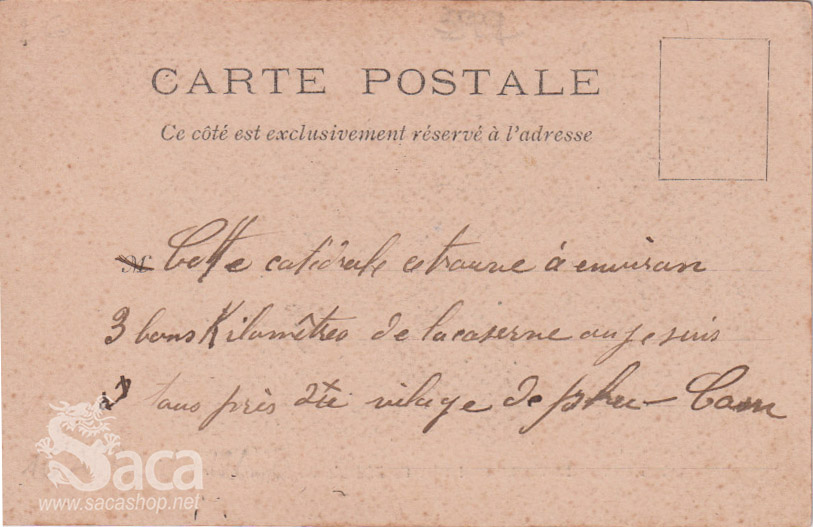 CARTE POSTALE
Ce côté est exclusivement réservé à l'adresse
M
Cette catédrale cetrouve à environ
3 bons Kilomètres de la caserne ou je suis
tous près village de phu-Cam
Saca
www.sacashop.net